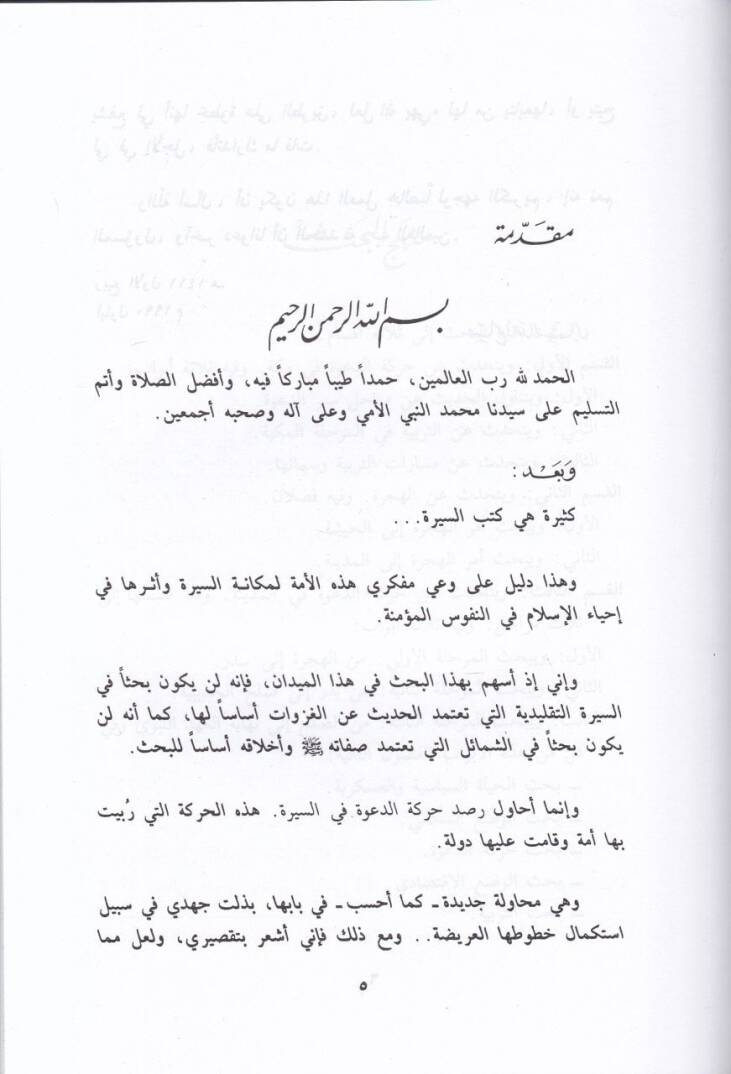 مقدّمة
بسم الله الرحمن الرحيم
الحمد لله رب العالمين، حمداً طيباً مباركاً فيه، وأفضل الصلاة وأتم
التسليم على سيدنا محمد النبي الأمي وعلى آله وصحبه أجمعين.
وَبَعْد:
كثيرة هي كتب السيرة...
وهذا دليل على وعي مفكري هذه الأمة لمكانة السيرة وأثرها في
إحياء الإسلام في النفوس المؤمنة.
وإني إذ أسهم بهذا البحث في هذا الميدان، فإنه لن يكون بحثاً في
السيرة التقليدية التي تعتمد الحديث عن الغزوات أساساً لها، كما أنه لن
يكون بحثاً في الشمائل التي تعتمد صفاته ﷺ وأخلاقه أساساً للبحث.
وإنما أحاول رصد حركة الدعوة في السيرة. هذه الحركة التي رُبيت
بها أمة وقامت عليها دولة.
وهي محاولة جديدة ـ كما أحسب ـ في بابها، بذلت جهدي في سبيل
استكمال خطوطها العريضة.. ومع ذلك فإني أشعر بتقصيري، ولعل مما
٥